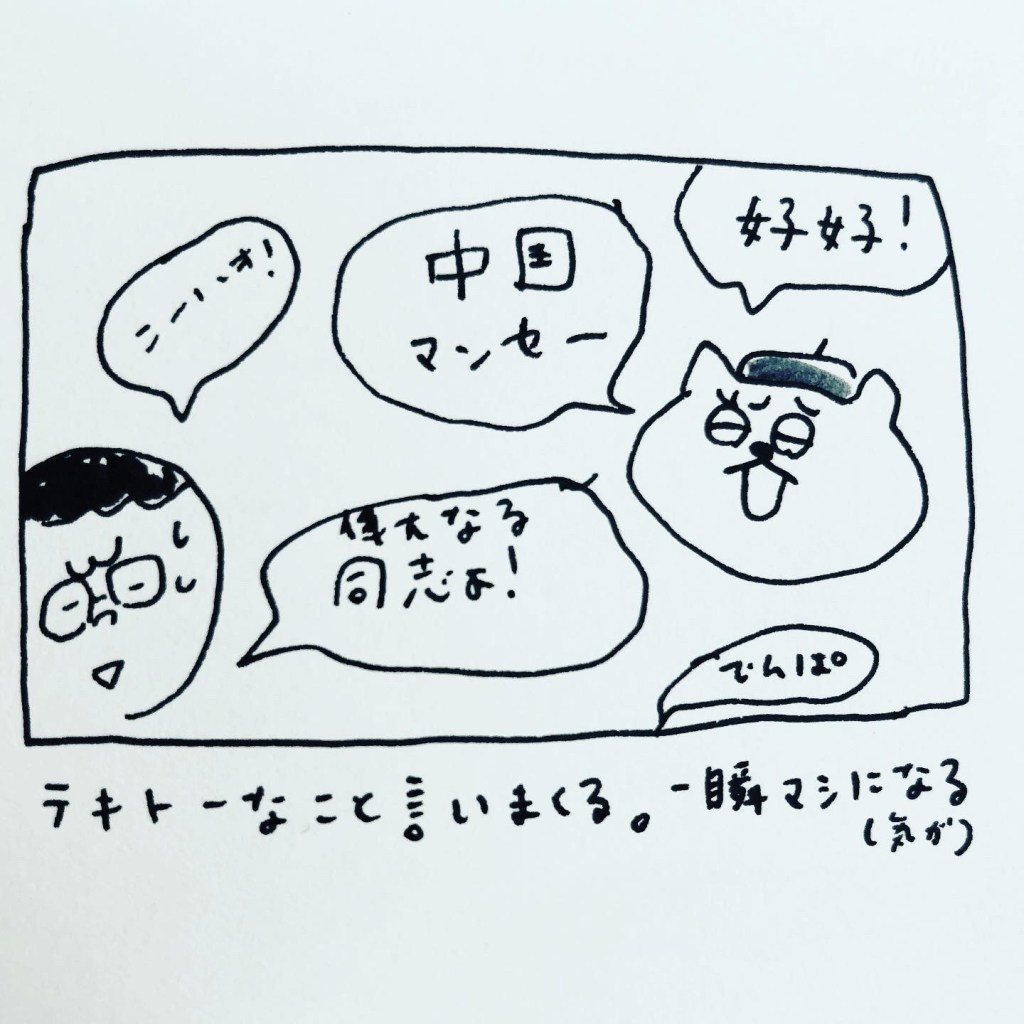 ニーハオ!
中国
マンセー
好好!
偉大なる
同志よ!
でんぱ。
テキトーなこと言いまくる。一瞬マシになる
(気が)